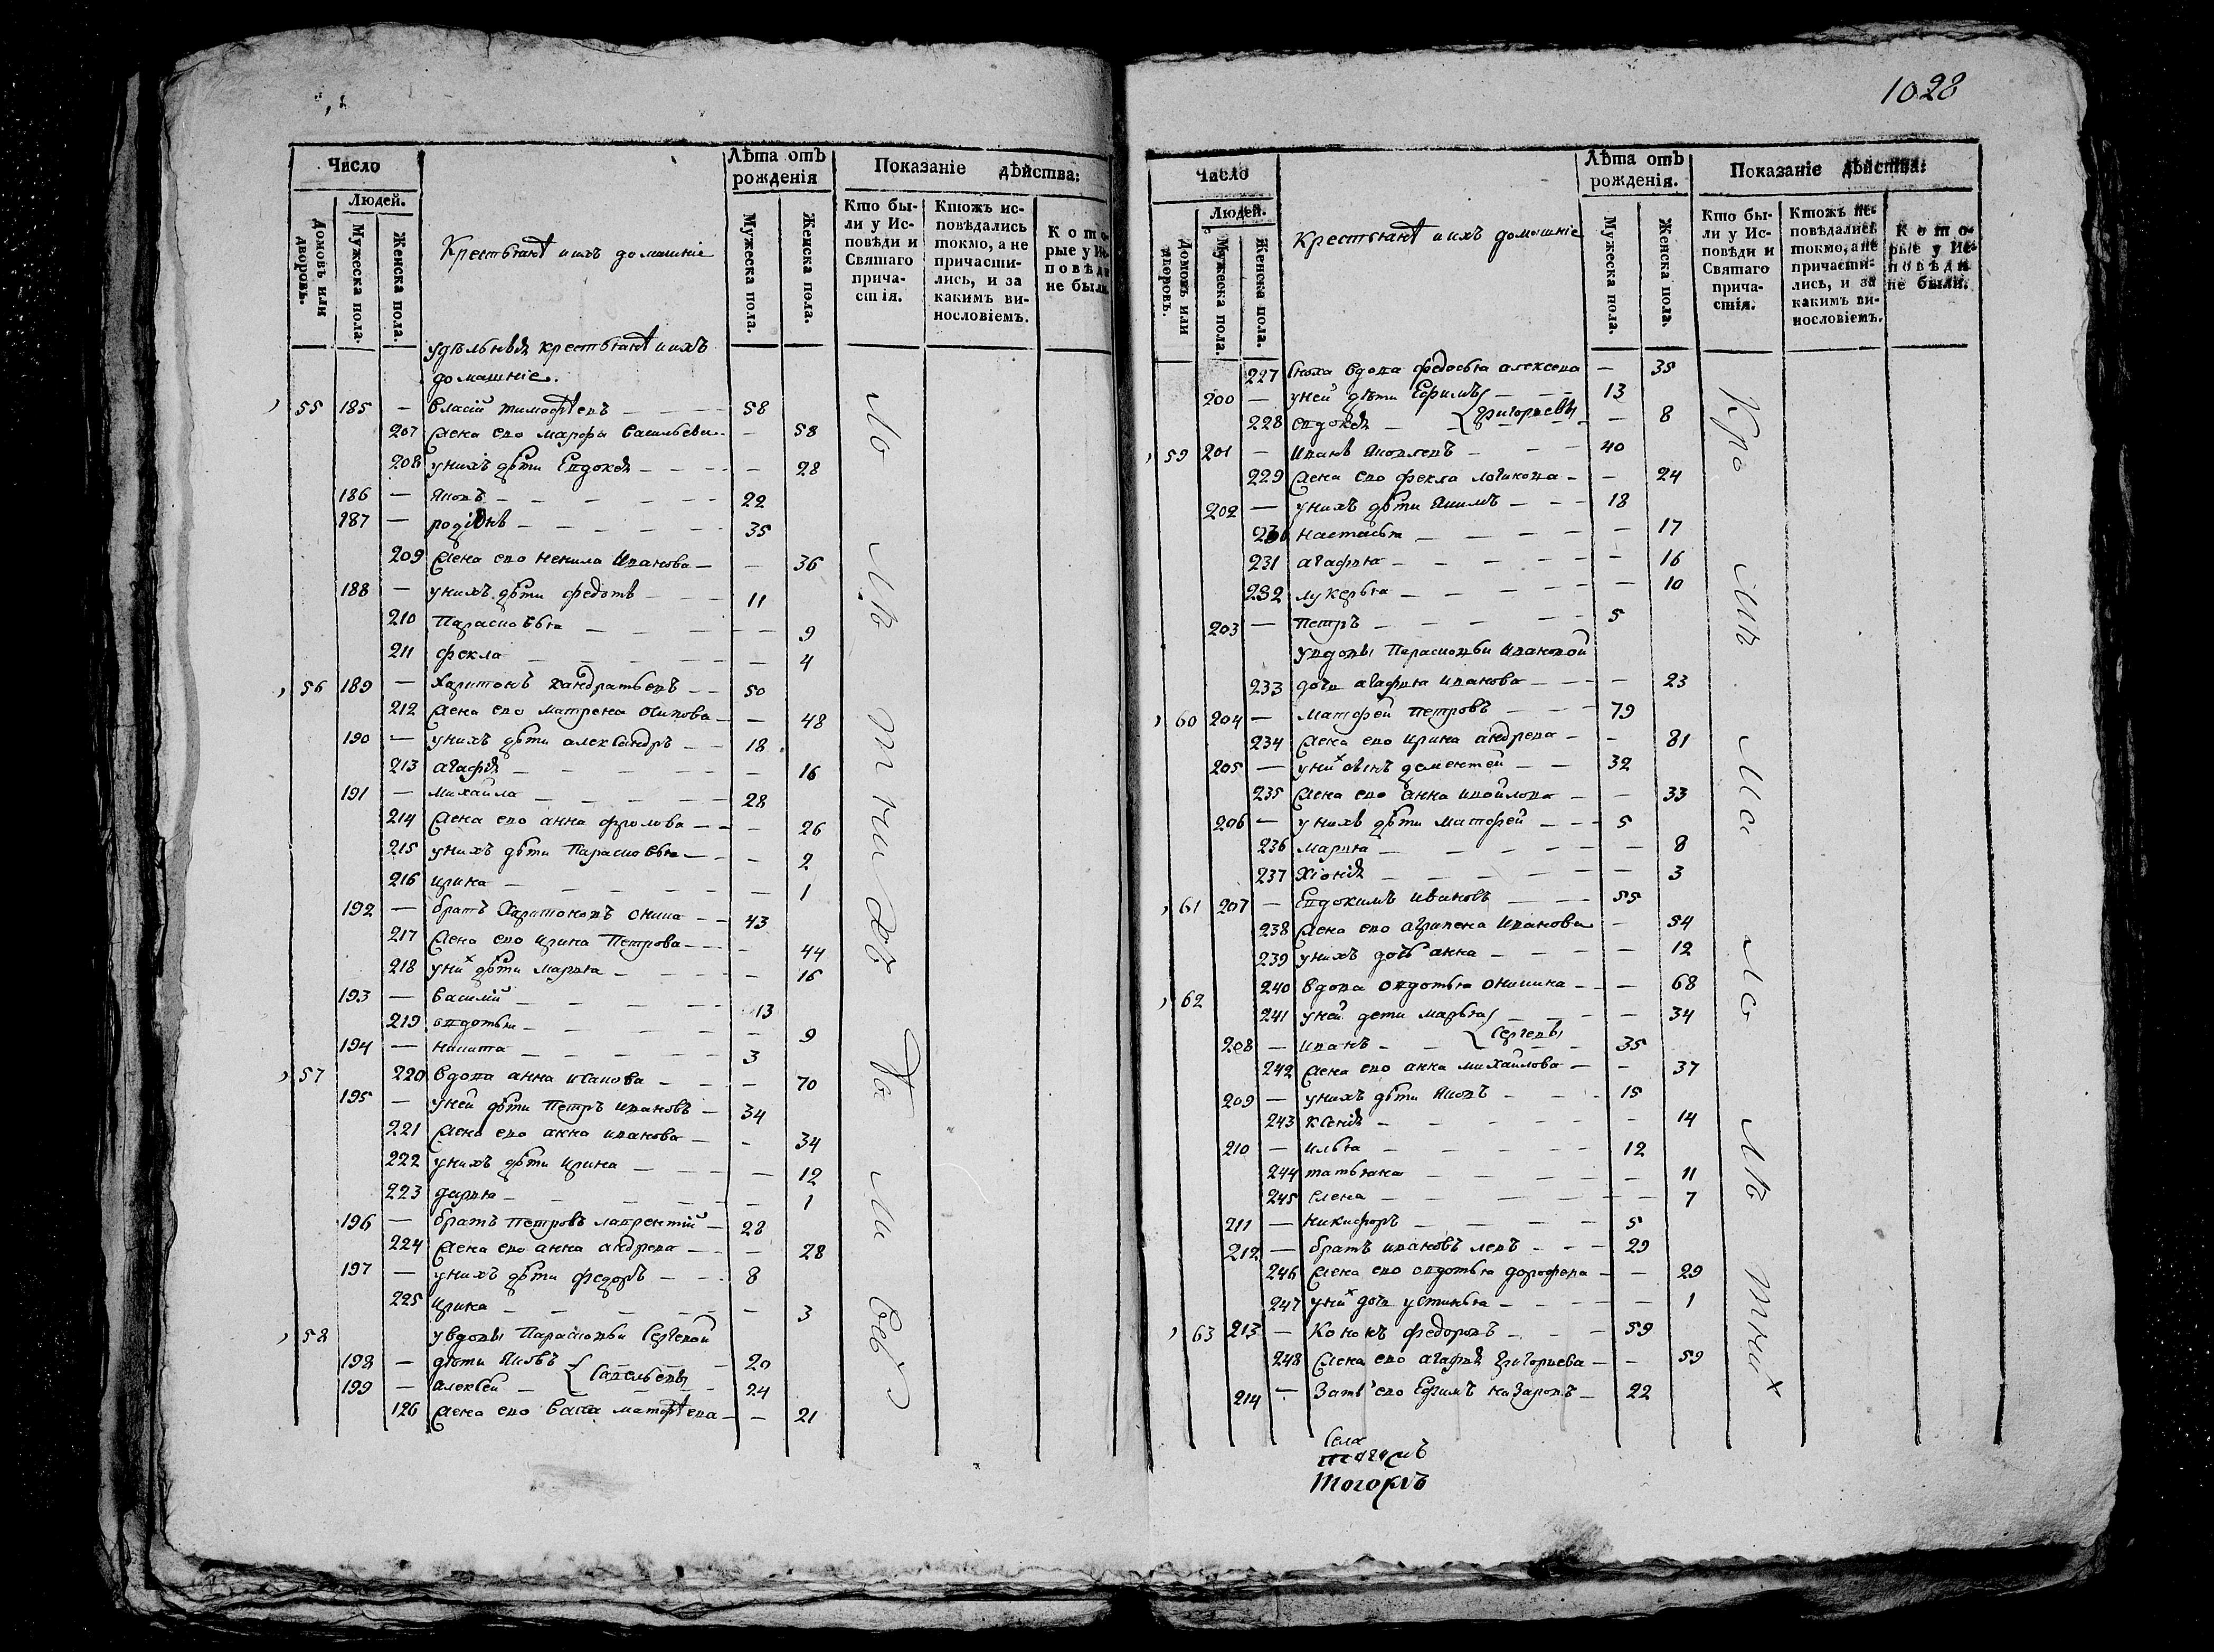 1028
Число
Людей.
Домовъ или дворовъ.
Мужеска пола.
Женска пола.
Крестьянѣ ихъ домашніе
Лѣта отъ рожденія
Мужеска пола.
Женска пола.
Показаніе дѣйства:
Кто бы-
ли у Ис-
повѣди и
Святаго
прича-
стія.
Ктожъ ис-
повѣдались
токмо, а не
причасти-
лись, и за
какимъ ви-
нословіемъ.
Кото-
рые у Ис-
повѣди
не были.
удѣльныя крестьянѣ ихъ
домашніе.
55 185 — Власій тимофѣевъ — 58
207 жена ево марфа васильева — 58
208 унихъ дѣти Евдокѣя — 28
186 — Яковъ — 22
187 — родіонъ — 35
209 жена ево ненила Иванова — 36
188 — унихъ дѣти федотъ — 11
210 Парасковья — 9
211 фекла — 4
56 189 — Харитонъ кандратьевъ — 50
212 жена ево матрена осипова — 48
190 — унихъ дѣти александръ — 18
213 агафья — 16
191 — михайла — 28
214 жена ево анна фролова — 26
215 унихъ дѣти Парасковья — 2
216 ирина — 1
192 — братъ Харитоновъ 43
217 жена ево ирина Петрова — 44
218 унихъ дѣти марья — 16
193 — василій — 13
219 овдотья — 9
194 — никита — 3
57 220 вдова анна исакова — 70
195 — уней дѣти Петръ ивановъ — 34
221 жена ево анна иванова — 34
222 унихъ дѣти ирина — 12
223 дарья — 1
196 — братъ петровъ лаврентій — 28
224 жена ево анна андрева — 28
197 — унихъ дѣти федоръ — 8
225 ирина — 3
58 увдовы Парасковьи Сергевой
198 — дѣти Яковъ — 20
Савельевы
199 — алексѣй — 24
126 жена ево матфѣева — 21
Число
Людей.
Домовъ или дворовъ.
Мужеска пола.
Женска пола.
Крестьянѣ ихъ домашніе
Лѣта отъ рожденія.
Мужеска пола.
Женска пола.
Показаніе дѣйства:
Кто бы-
ли у Ис-
повѣди и
Святаго
прича-
стія.
Ктожъ ис-
повѣдались
токмо, а не
причасти-
лись, и за
какимъ ви-
нословіемъ.
Кото-
рые у Ис-
повѣди
не были.
227 вдова федосья алексева — 35
200 — уней дѣти Ефимъ — 13
Григорьевы
228 евдокѣя — 8
59 201 — Иванъ Яковлевъ — 40
229 жена ево фекла логинова — 24
202 — унихъ дѣти Якимъ — 18
230 настасья — 17
231 агафья — 16
232 лукерья — 10
203 — Петръ — 5
увдовы Парасковьи ивановой
233 дочь агафья иванова — 23
60 204 — матфей петровъ — 79
234 жена ево ирина андрева — 81
205 — унихъ сынъ дементей — 32
235 жена ево анна — 33
206 — унихъ дѣти матфей — 5
236 марья — 8
237 Хіонія — 3
61 207 — Евдокимъ ивановъ — 55
238 жена ево агрипена Иванова — 54
239 унихъ дочь анна — 12
62 240 вдова овдотья — 68
241 уней дети марья — 34
Сергевы
208 — иванъ — 35
242 жена ево анна михайлова — 37
209 — унихъ дѣти Яковъ — 15
243 ксенія — 14
210 — илья — 12
244 татьяна — 11
245 елена — 7
211 — Никифоръ — 5
212 — братъ ивановъ левъ — 29
246 жена ево овдотья дорофева — 29
247 унихъ дочь устинья — 1
63 213 — Кононъ федоровъ — 59
248 жена ево агафья григорьева — 59
214 — Зять ево Ефимъ назаровъ — 22
Села